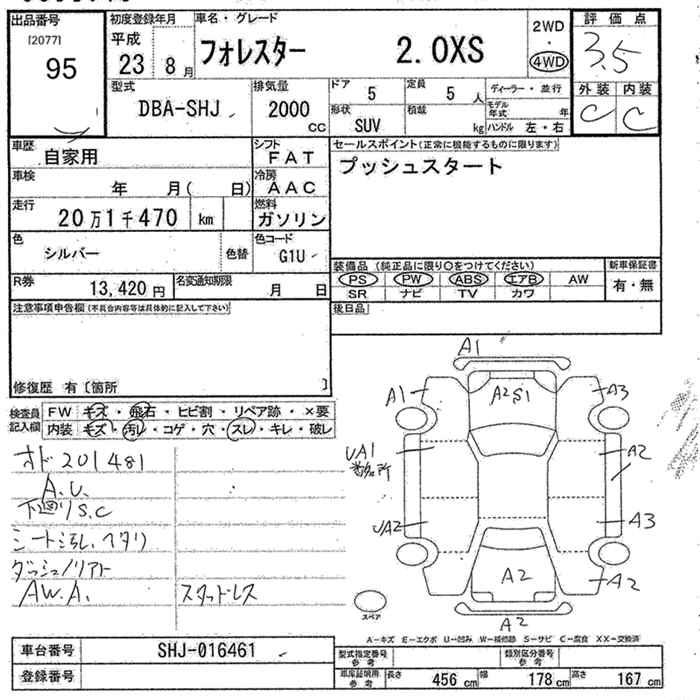 出品番号
[2077]
95
初度登録年月
平成
23 8月
車名・グレード
フォレスター 2.0XS
2WD
・
4WD
評価点
3.5
外装 内装
C C
型式
DBA-SHJ
排気量
2000
CC
ドア 5
定員 5 人
ディーラー・並行
形状
SUV
積載
kg
モデル年式 年
ハンドル 左・右
車歴
自家用
シフト
FAT
車検
年 月( 日)
冷房
AAC
走行
20万1千470 km
燃料
ガソリン
色
シルバー
色替
色コード
G1U
R券
13,420 円
名変通知期限
月 日
セールスポイント(正常に機能するものに限ります)
プッシュスタート
装備品 (純正品に限り○をつけてください)
新車保証書
PS PW ABS エアB AW
有・無
SR ナビ TV カワ
後日品
注意事項申告欄(不具合内容等は具体的に記入して下さい)
修復歴 有〔箇所 〕
検査員記入欄
FW キズ・飛石・ヒビ割・リペア跡・×要
内装 キズ・汚レ・コゲ・穴・スレ・キレ・破レ
オド201481
A.U.
下廻りS.C
シート汚れ、ヘタリ
AW.A.
スタッドレス
A1
A1
A2 S1
A3
UA1
A2
UA2
A3
A2
A2
A2
スペア
A-キズ E-エクボ U-凹み W-補修跡 S-サビ C-腐食 XX-交換済
車台番号 SHJ-016461
登録番号
型式指定番号 参考
類別区分番号 参考
車庫証明用 参考
長さ 456 cm 幅 178 cm 高さ 167 cm